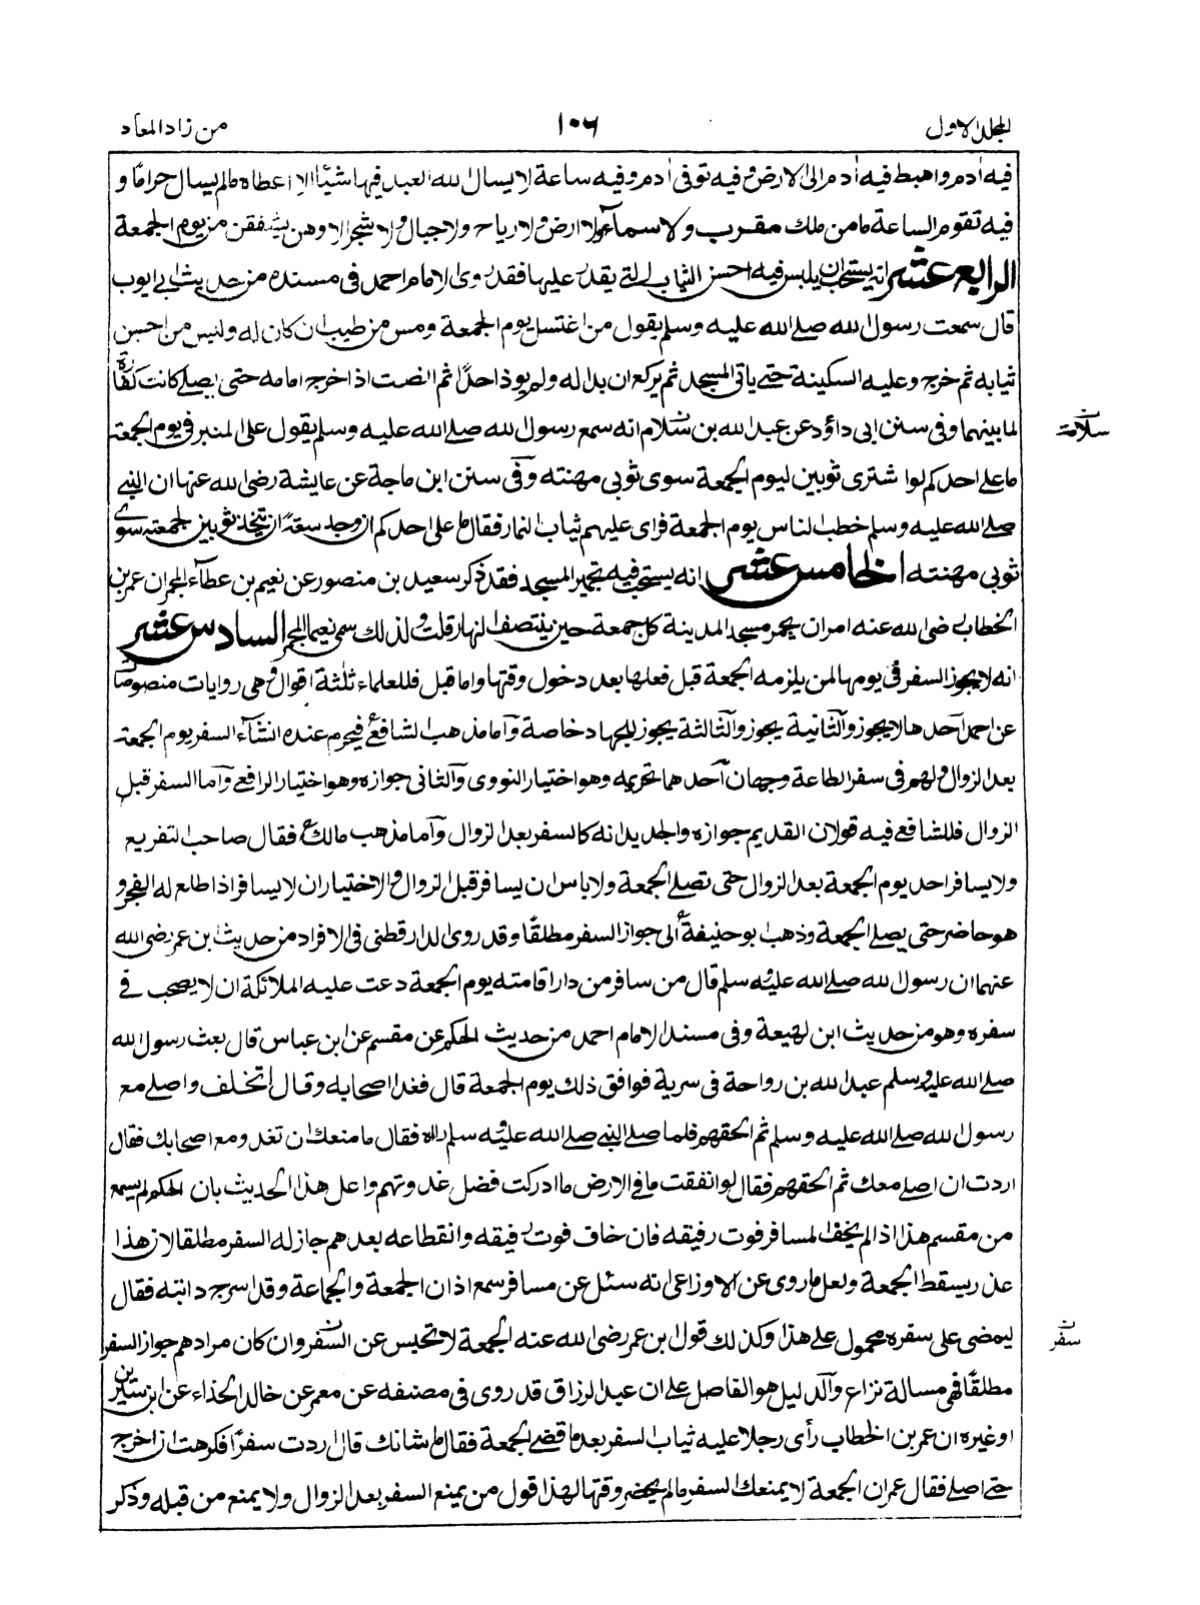 المجلد الاول
١٠٦
من زاد المعاد
فيه اٰدم واهبط فيه اٰدم الى الارض وفيه توفى اٰدم وفيه ساعة لا يسال الله العبد فيها شيئا الا اعطاه مالم يسال حراما و
فيه تقوم الساعة ما من ملك مقرب ولا سماء ولا ارض ولا رياح ولا جبال ولا شجر الا وهن يشفقن من يوم الجمعة
الرابع عشر انه يستحب ان يلبس فيه احسن الثياب التے يقدر عليها فقد روى الامام احمد فى مسنده من حديث ابے ايوب
قال سمعت رسول الله صلے الله عليه وسلم يقول من اغتسل يوم الجمعة ومس من طيب ان كان له ولبس من احسن
ثيابه ثم خرج وعليه السكينة حتے ياتى المسجد ثم يركع ان بدا له ولم يوذ احدًا ثم انصت اذا خرج امامه حتى يصلے كانت كفارة
لما بينهما وفى سنن ابى داؤد عن عبد الله بن سلام انه سمع رسول الله صلے الله عليه وسلم يقول على المنبر فى يوم الجمعة
سلامة
ما على احدكم لو اشترى ثوبين ليوم الجمعة سوى ثوبى مهنته وفى سنن ابن ماجة عن عايشة رضى الله عنها ان النبے
صلے الله عليه وسلم خطب الناس يوم الجمعة فراى عليهم ثياب النمار فقال ما على احدكم ان وجد سعة ان يتخذ ثوبين لجمعته سوى
ثوبى مهنته الخامس عشر انه يستحب فيه تجمير المسجد فقد ذكر سعيد بن منصور عن نعيم بن عطاء المجمر ان عمر بن
الخطاب رضى الله عنه امر ان يجمر مسجد المدينة كل جمعة حين ينتصف النهار قلت ولذلك سمى نعيم المجمر السادس عشر
انه لا يجوز السفر فى يومها لمن يلزمه الجمعة قبل فعلها بعد دخول وقتها واما قبل فللعلماء ثلثة اقوال وهى روايات منصوصا
عن احمد احدها لا يجوز والثانية يجوز والثالثة يجوز للجهاد خاصة واما مذهب الشافعے فيحرم عنده انشاء السفر يوم الجمعة
بعد الزوال ولهم فى سفر الطاعة وجهان احدهما تحريمه وهو اختيار النووى والثانى جوازه وهو اختيار الرافعے واما السفر قبل
الزوال فللشافعے فيه قولان القديم جوازه والجديد انه كالسفر بعد الزوال واما مذهب مالك فقال صاحب التفريع
ولا يسافر احد يوم الجمعة بعد الزوال حتى تصلے الجمعة ولا باس ان يسافر قبل الزوال والاختيار ان لا يسافر اذا طلع له الفجر و
هو حاضر حتى يصلے الجمعة وذهب ابو حنيفة الى جواز السفر مطلقا وقد روى الدارقطنى فى الافراد من حديث ابن عمر رضى الله
عنهما ان رسول الله صلے الله عليه وسلم قال من سافر من دار اقامته يوم الجمعة دعت عليه الملائكة ان لا يصحب فے
سفره وهو من حديث ابن لهيعة وفى مسند الامام احمد من حديث الحكم عن مقسم عن ابن عباس قال بعث رسول الله
صلے الله عليه وسلم عبد الله بن رواحة فى سرية فوافق ذلك يوم الجمعة قال فغدا اصحابه وقال اتخلف واصلے مع
رسول الله صلے الله عليه وسلم ثم الحقهم فلما صلے النبے صلے الله عليه وسلم راه فقال ما منعك ان تغدو مع اصحابك فقال
اردت ان اصلے معك ثم الحقهم فقال لو انفقت ما فى الارض ما ادركت فضل غدوتهم واعل هذا الحديث بان الحكم لم يسمع
من مقسم هذا اذا لم يخف المسافر فوت رفيقه فان خاف فوت رفيقه وانقطاعه بعدهم جاز له السفر مطلقا لان هذا
عذر يسقط الجمعة ولعل ما روى عن الاوزاعى انه سئل عن مسافر سمع اذان الجمعة والجماعة وقد اسرج دابته فقال
ليمضى على سفره محمول علے هذا وكذلك قول ابن عمر رضى الله عنه الجمعة لا تحبس عن السفر وان كان مرادهم جواز السفر
سفر
مطلقا فهى مسالة نزاع والدليل هو الفاصل علے ان عبد الرزاق قد روى فى مصنفه عن معمر عن خالد الحذاء عن ابن سيرين
اوغيره ان عمر بن الخطاب رأى رجلا عليه ثياب السفر بعد ما قضے الجمعة فقال ما شانك قال اردت سفرا فكرهت ان اخرج
حتے اصلے فقال عمر ان الجمعة لا يمنعك السفر مالم يحضر وقتها لهذا قول من يمنع السفر بعد الزوال ولا يمنع من قبله وذكر